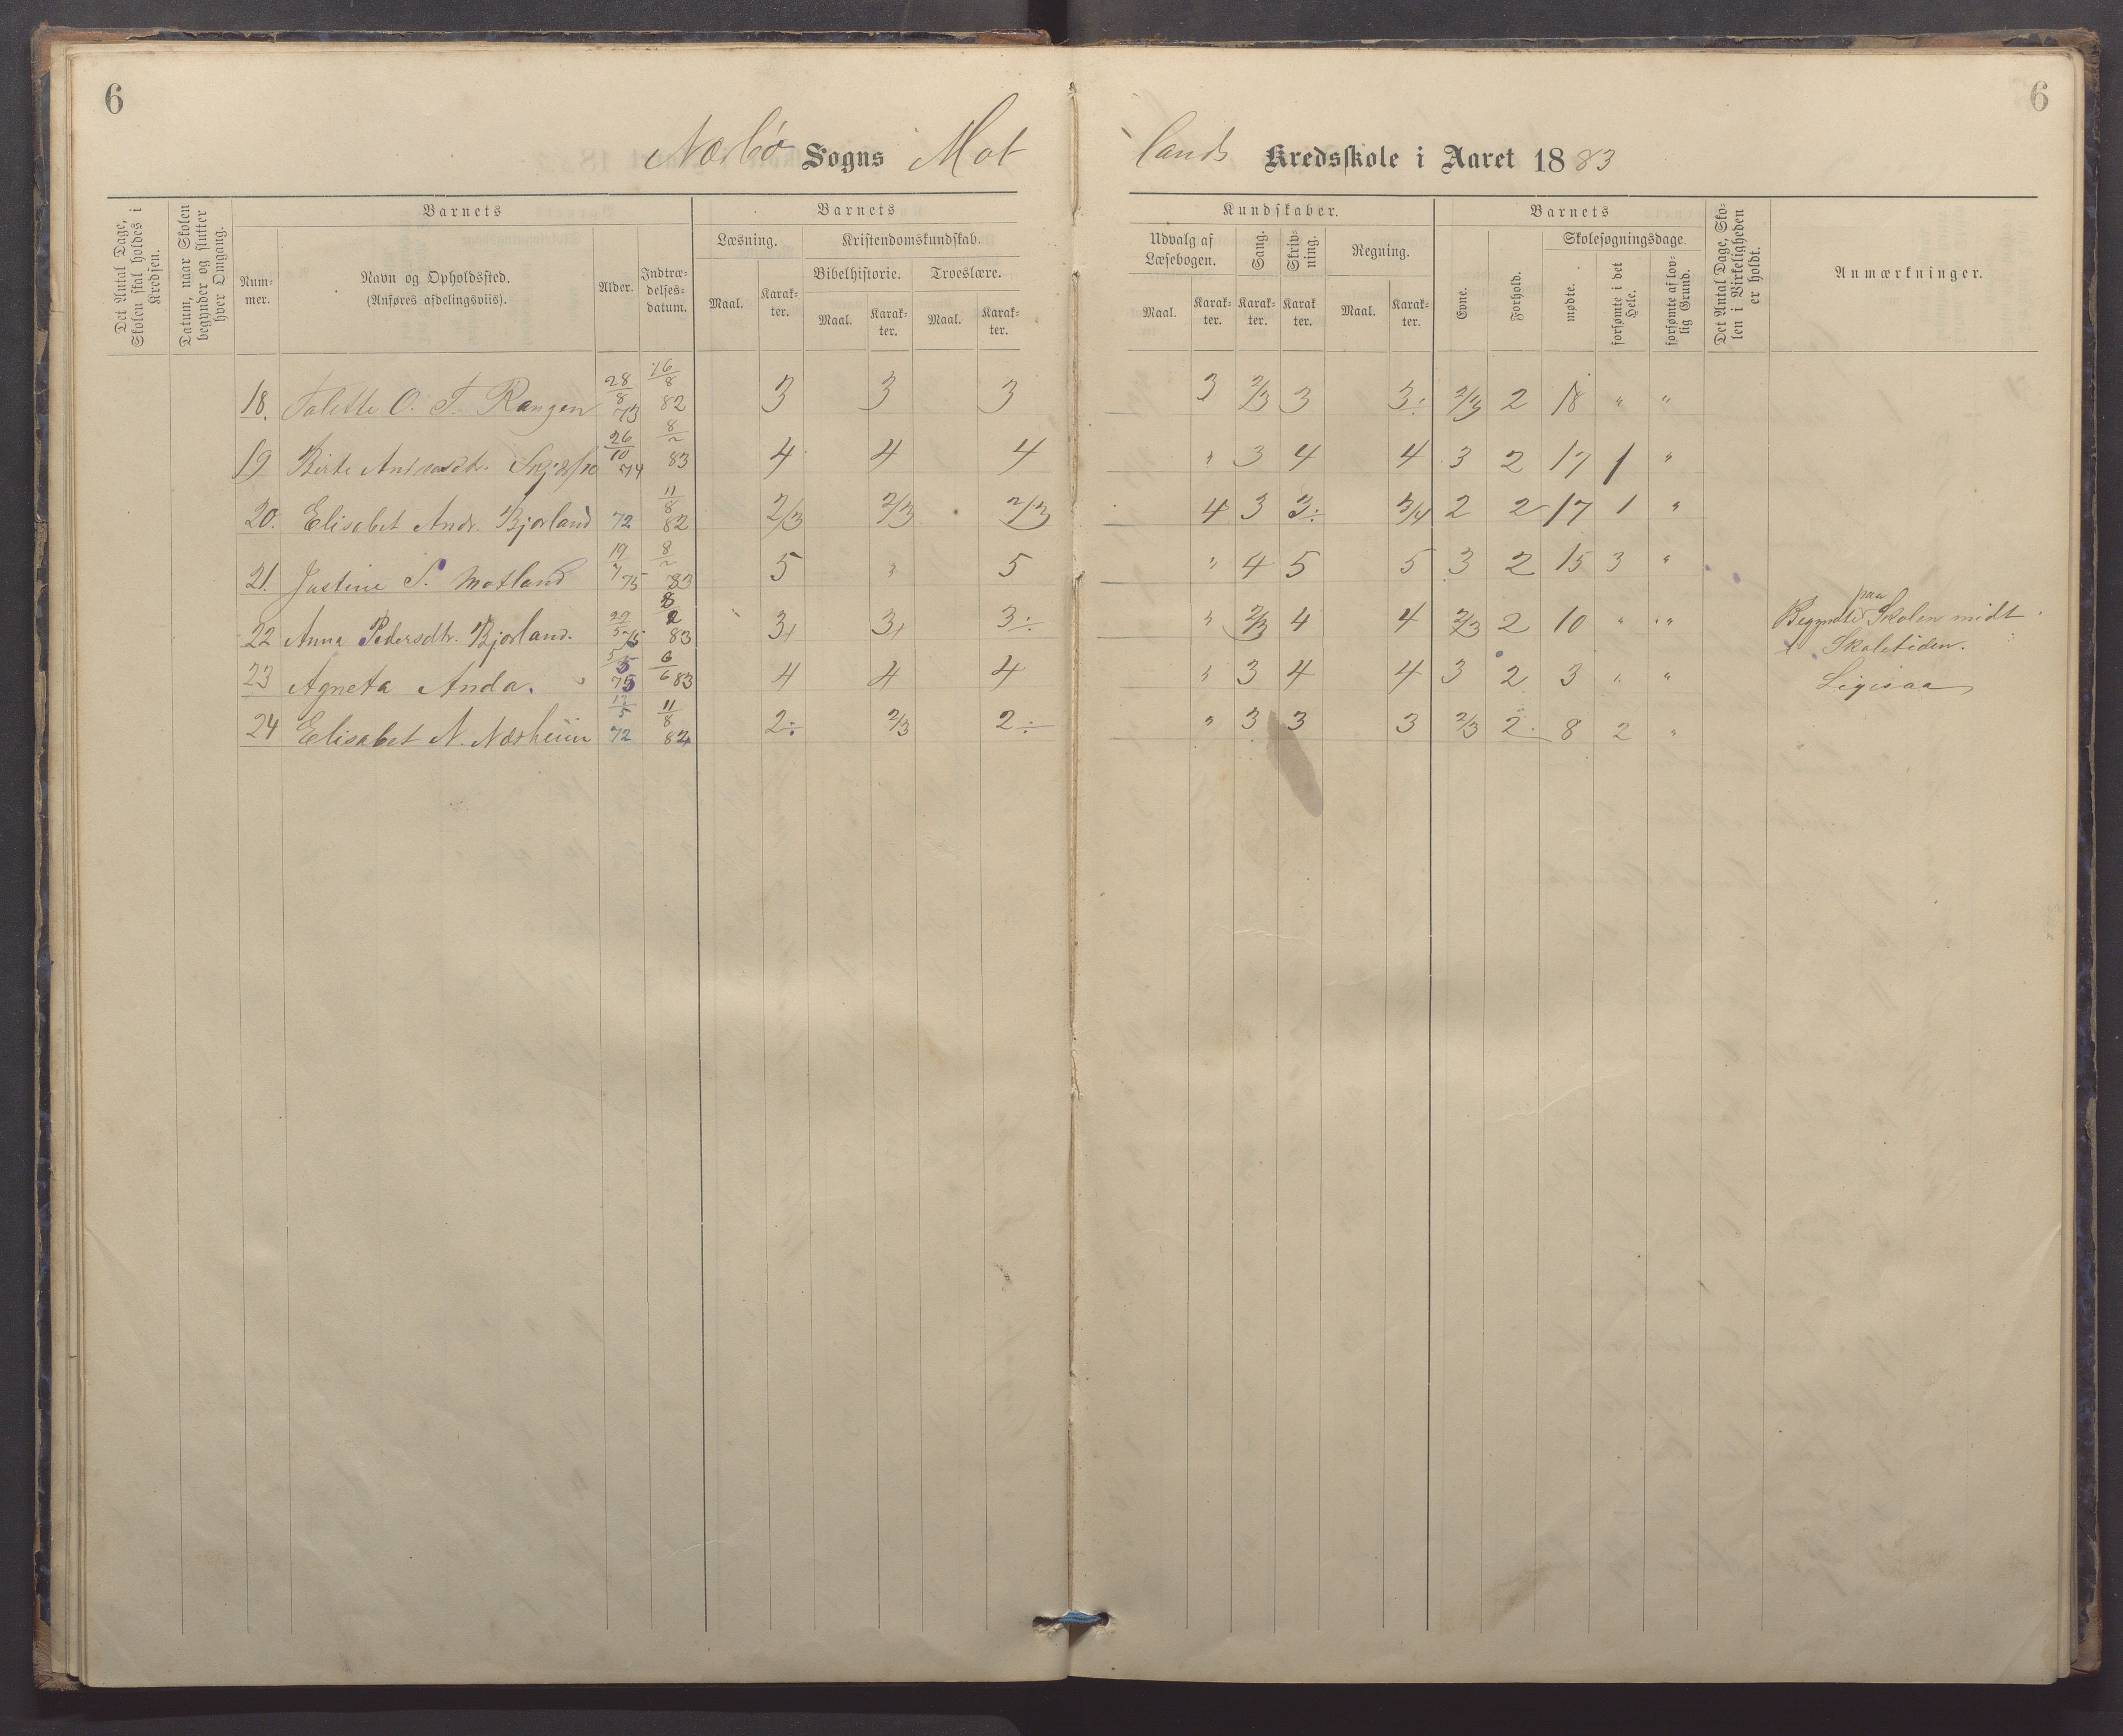 6
6
Nærbø Sogns Mot lands Kredsskole i Aaret 1883
Det Antal Dage, Skolen skal holdes i Kredsen.
Datum, naar Skolen begynder og slutter hver Omgang.
Barnets
Num-mer.
Navn og Opholdssted. (Anføres afdelingsviis).
Alder.
Indtræ-delses-datum.
Barnets
Læsning.
Maal.
Karak-ter.
Kristendomskundskab.
Bibelhistorie.
Maal.
Karak-ter.
Troeslære.
Maal.
Karak-ter.
Kundskaber.
Udvalg af Læsebogen.
Maal.
Karak-ter.
Sang.
Karak-ter.
Skriv-ning.
Karak ter.
Regning.
Maal.
Karak-ter.
Barnets
Evne.
Forhold.
Skolesøgningsdage.
mødte.
forsømte i det Hele.
forsømte af lov-lig Grund.
Det Antal Dage, Sko-len i Virkeligheden er holdt.
Anmærkninger.
18. Talette O. T. Rangen 28/8 73 16/8 82 3 3 3 3 2/3 3 3÷ 2/3 2 18 " "
19 Birte Andreasdtr. 26/10 74 8/2 83 4 4 4 " 3 4 4 3 2 17 1 "
20. Elisabet Andr. Bjorland 72 11/8 82 2/3 2/3 2/3 4 3 3÷ 3/4 2 2 17 1 "
21. Justine S. Motland 19/7 75 8/2 83 5 " 5 " 4 5 5 3 2 15 3 "
22 Anna Pedersdtr. Bjorland. 29/5 75 8/2 83 3+ 3+ 3÷ " 2/3 4 4 2/3 2 10 " " Begyndte paa Skolen midt
i Skoletiden.
23 Agneta Anda. 5/5 75 6/6 83 4 4 4 " 3 4 4 3 2 3 " " Ligesaa
24 Elisabet N. Nærheim 12/5 72 11/8 82 2÷ 2/3 2÷ " 3 3 3 2/3 2 8 2 "